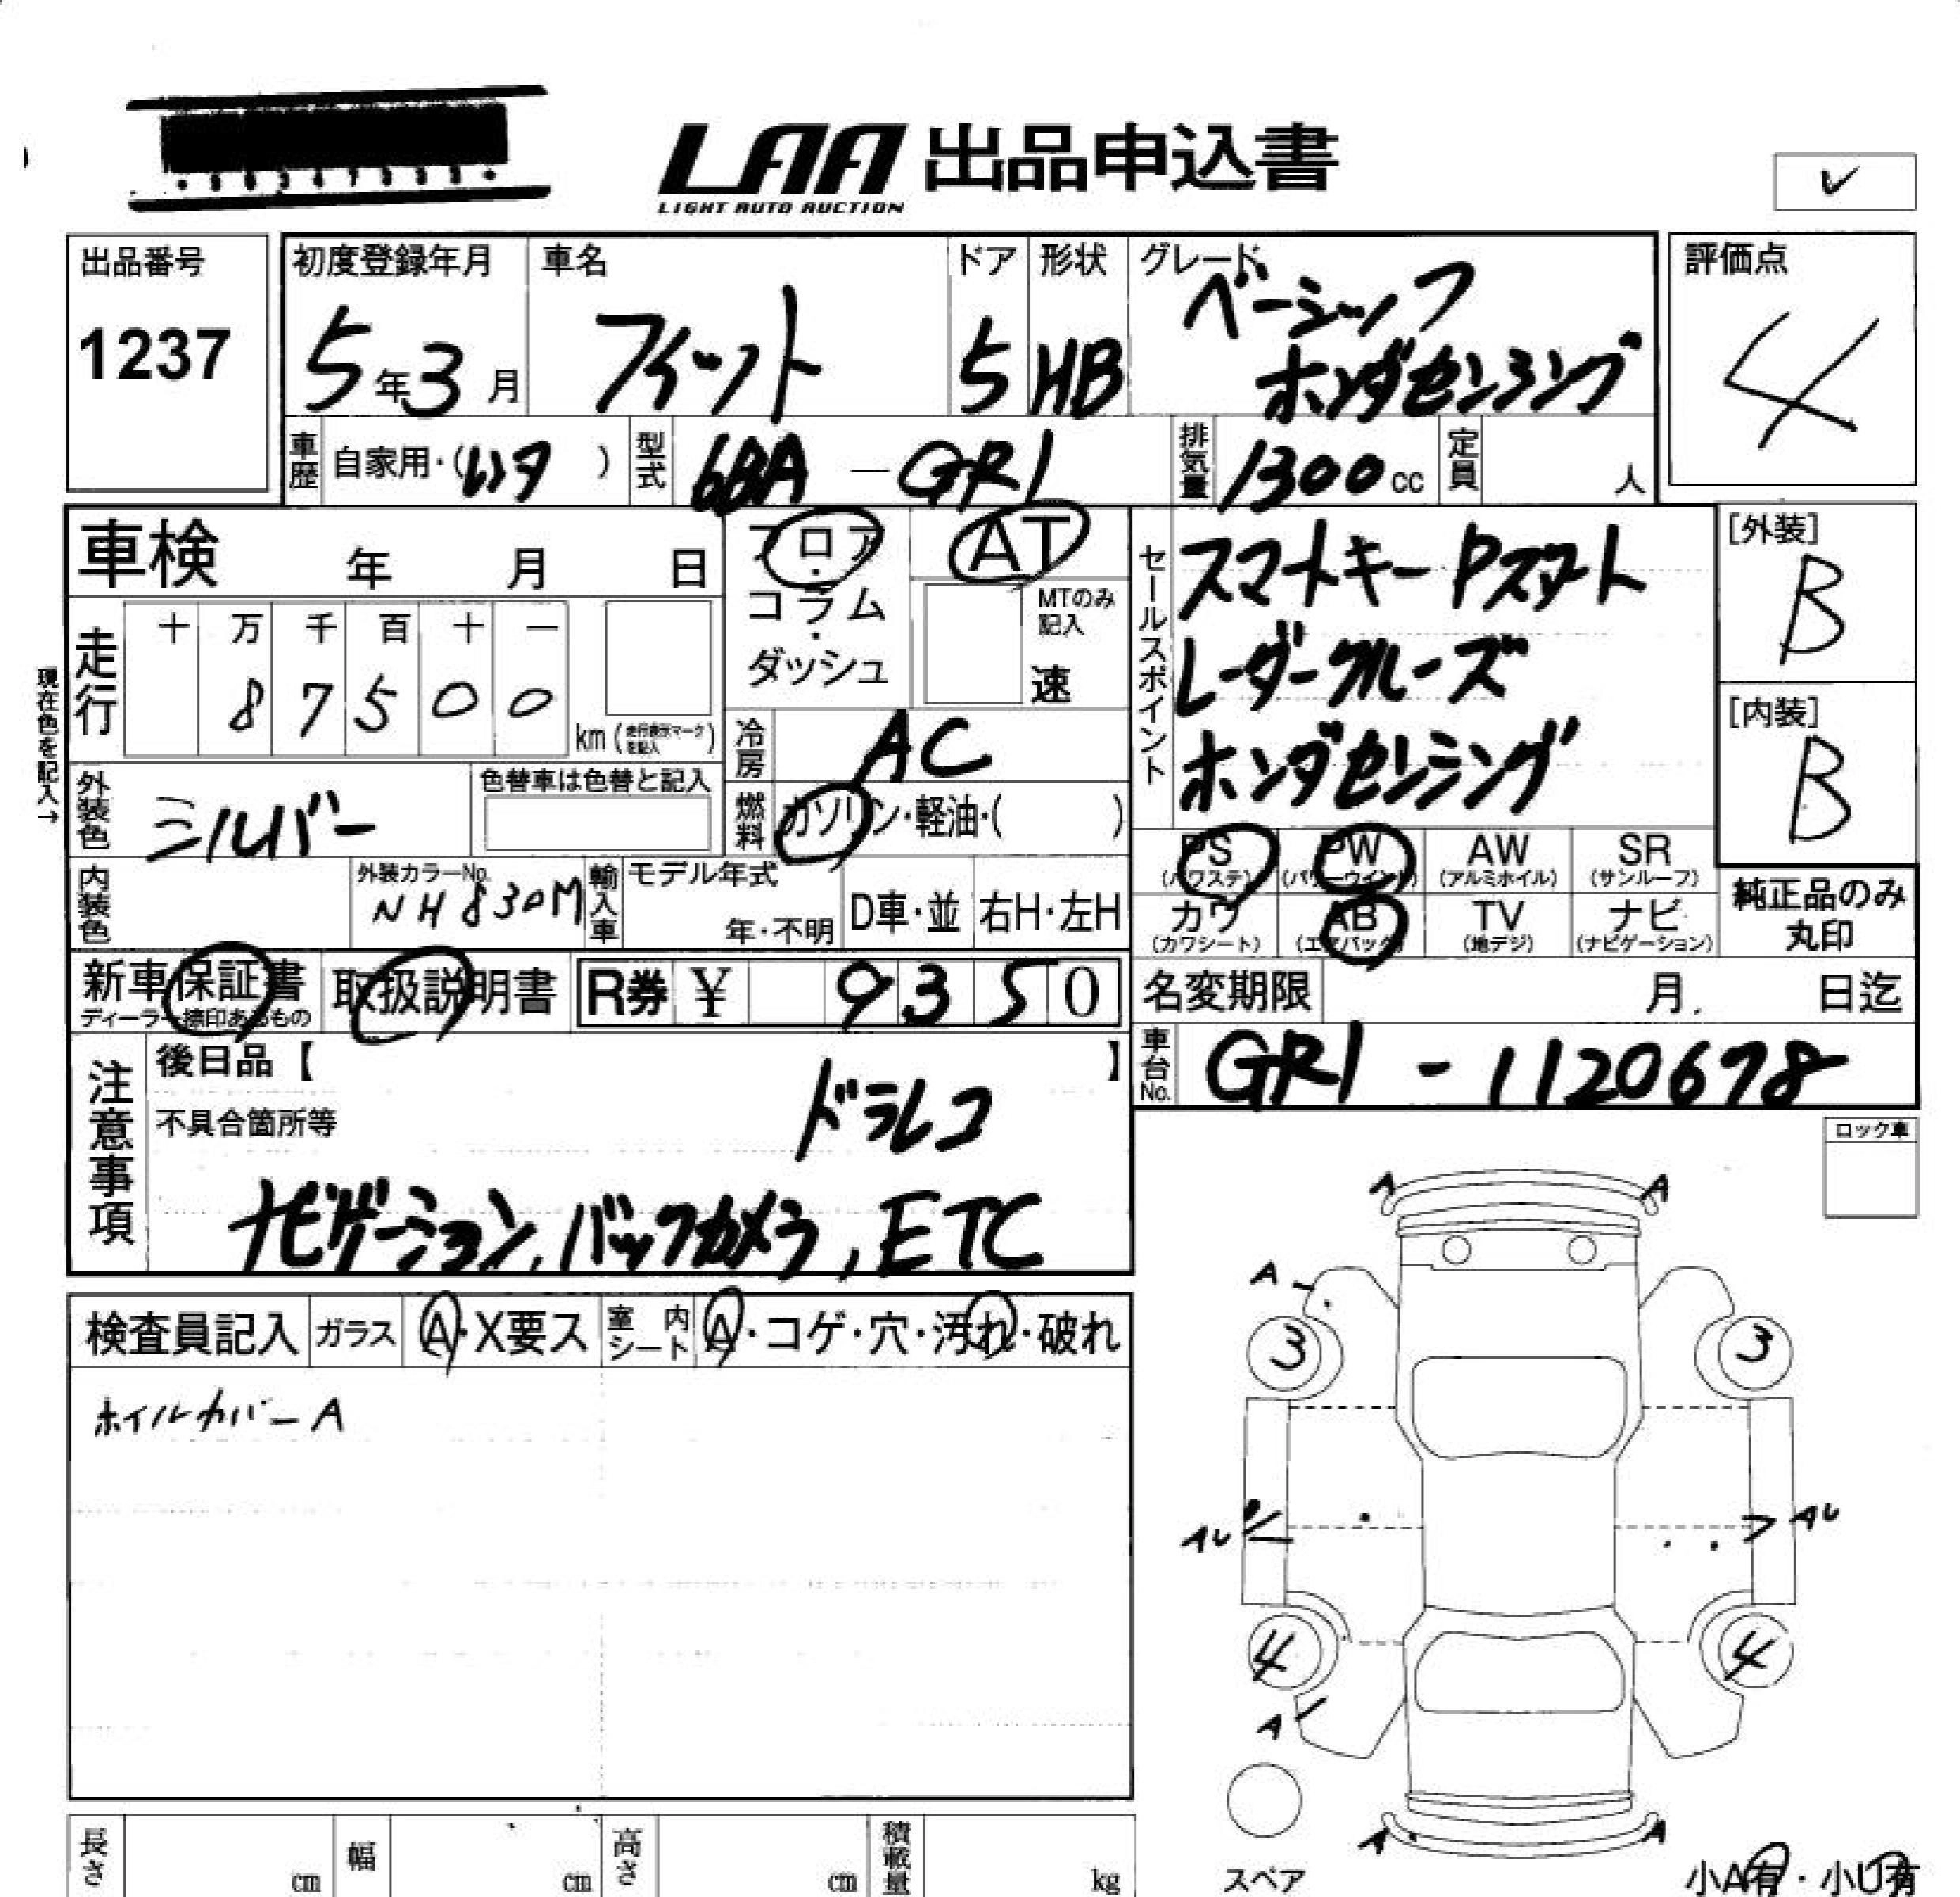 LAA 出品申込書
LIGHT AUTO AUCTION
✓
出品番号
1237
初度登録年月
5年3月
車名
フィット
ドア
5
形状
HB
グレード
ベーシック
ホンダセンシング
評価点
4
車歴
自家用・(レンタ)
型式
6BA-GR1
排気量
1300cc
定員
人
車検 年 月 日
フロア・コラム・ダッシュ
AT
MTのみ記入
速
走行
十 万 千 百 十 一
8 7 5 0 0
km(走行表示マークを記入)
現在色を記入→
冷房
AC
外装色
シルバー
色替車は色替と記入
燃料
ガソリン・軽油・( )
内装色
外装カラーNo.
NH830M
輸入車
モデル年式
年・不明
D車・並
右H・左H
セールスポイント
スマートキー Pスタート
レーダークルーズ
ホンダセンシング
[外装]
B
[内装]
B
PS
(パワステ)
PW
(パワーウインド)
AW
(アルミホイル)
SR
(サンルーフ)
カワ
(カワシート)
AB
(エアバック)
TV
(地デジ)
ナビ
(ナビゲーション)
純正品のみ
丸印
新車保証書
ディーラー捺印あるもの
取扱説明書
R券 ¥ 9350
名変期限 月 日迄
車台No.
GR1-1120678
注意事項
後日品【 】
不具合箇所等
ドラレコ
ナビゲーション,バックカメラ,ETC
ロック車
検査員記入
ガラス
A・X要ス
室内シート
A・コゲ・穴・汚れ・破れ
ホイルカバーA
A A
A
3 3
AU AU
4 4
A
A A
スペア
小A有・小U有
長さ cm
幅 cm
高さ cm
積載量 kg